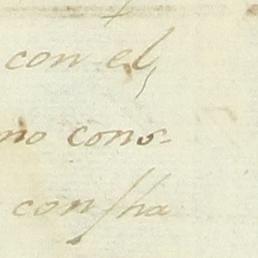 con el,
no cons-
consha